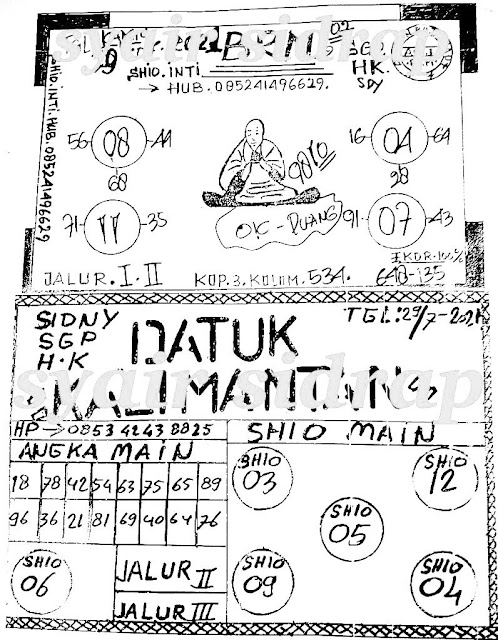 syair sidrap
BRM 02
SHIO.INTI
SGP.
HK.
SDY
→ HUB. 085241496629.
SHIO.INTI.HUB.085241496629
56 08 44
68
16 04 64
98
9870
71 11 35
OK-DUANG
91 07 43
EKOR.100%
JALUR.I-II
KOP.3.KOLOM.534.
648-135
SIDNY
SGP
H.K
TGL:29/7-2021
DATUK
KALIMANTAN
syair sidrap
HP → 0853 4243 8825
SHIO MAIN
ANGKA MAIN
18 78 42 54 63 75 65 89
96 36 21 81 69 40 64 76
SHIO
03
SHIO
12
SHIO
05
SHIO
06
JALUR II
JALUR III
SHIO
09
SHIO
04